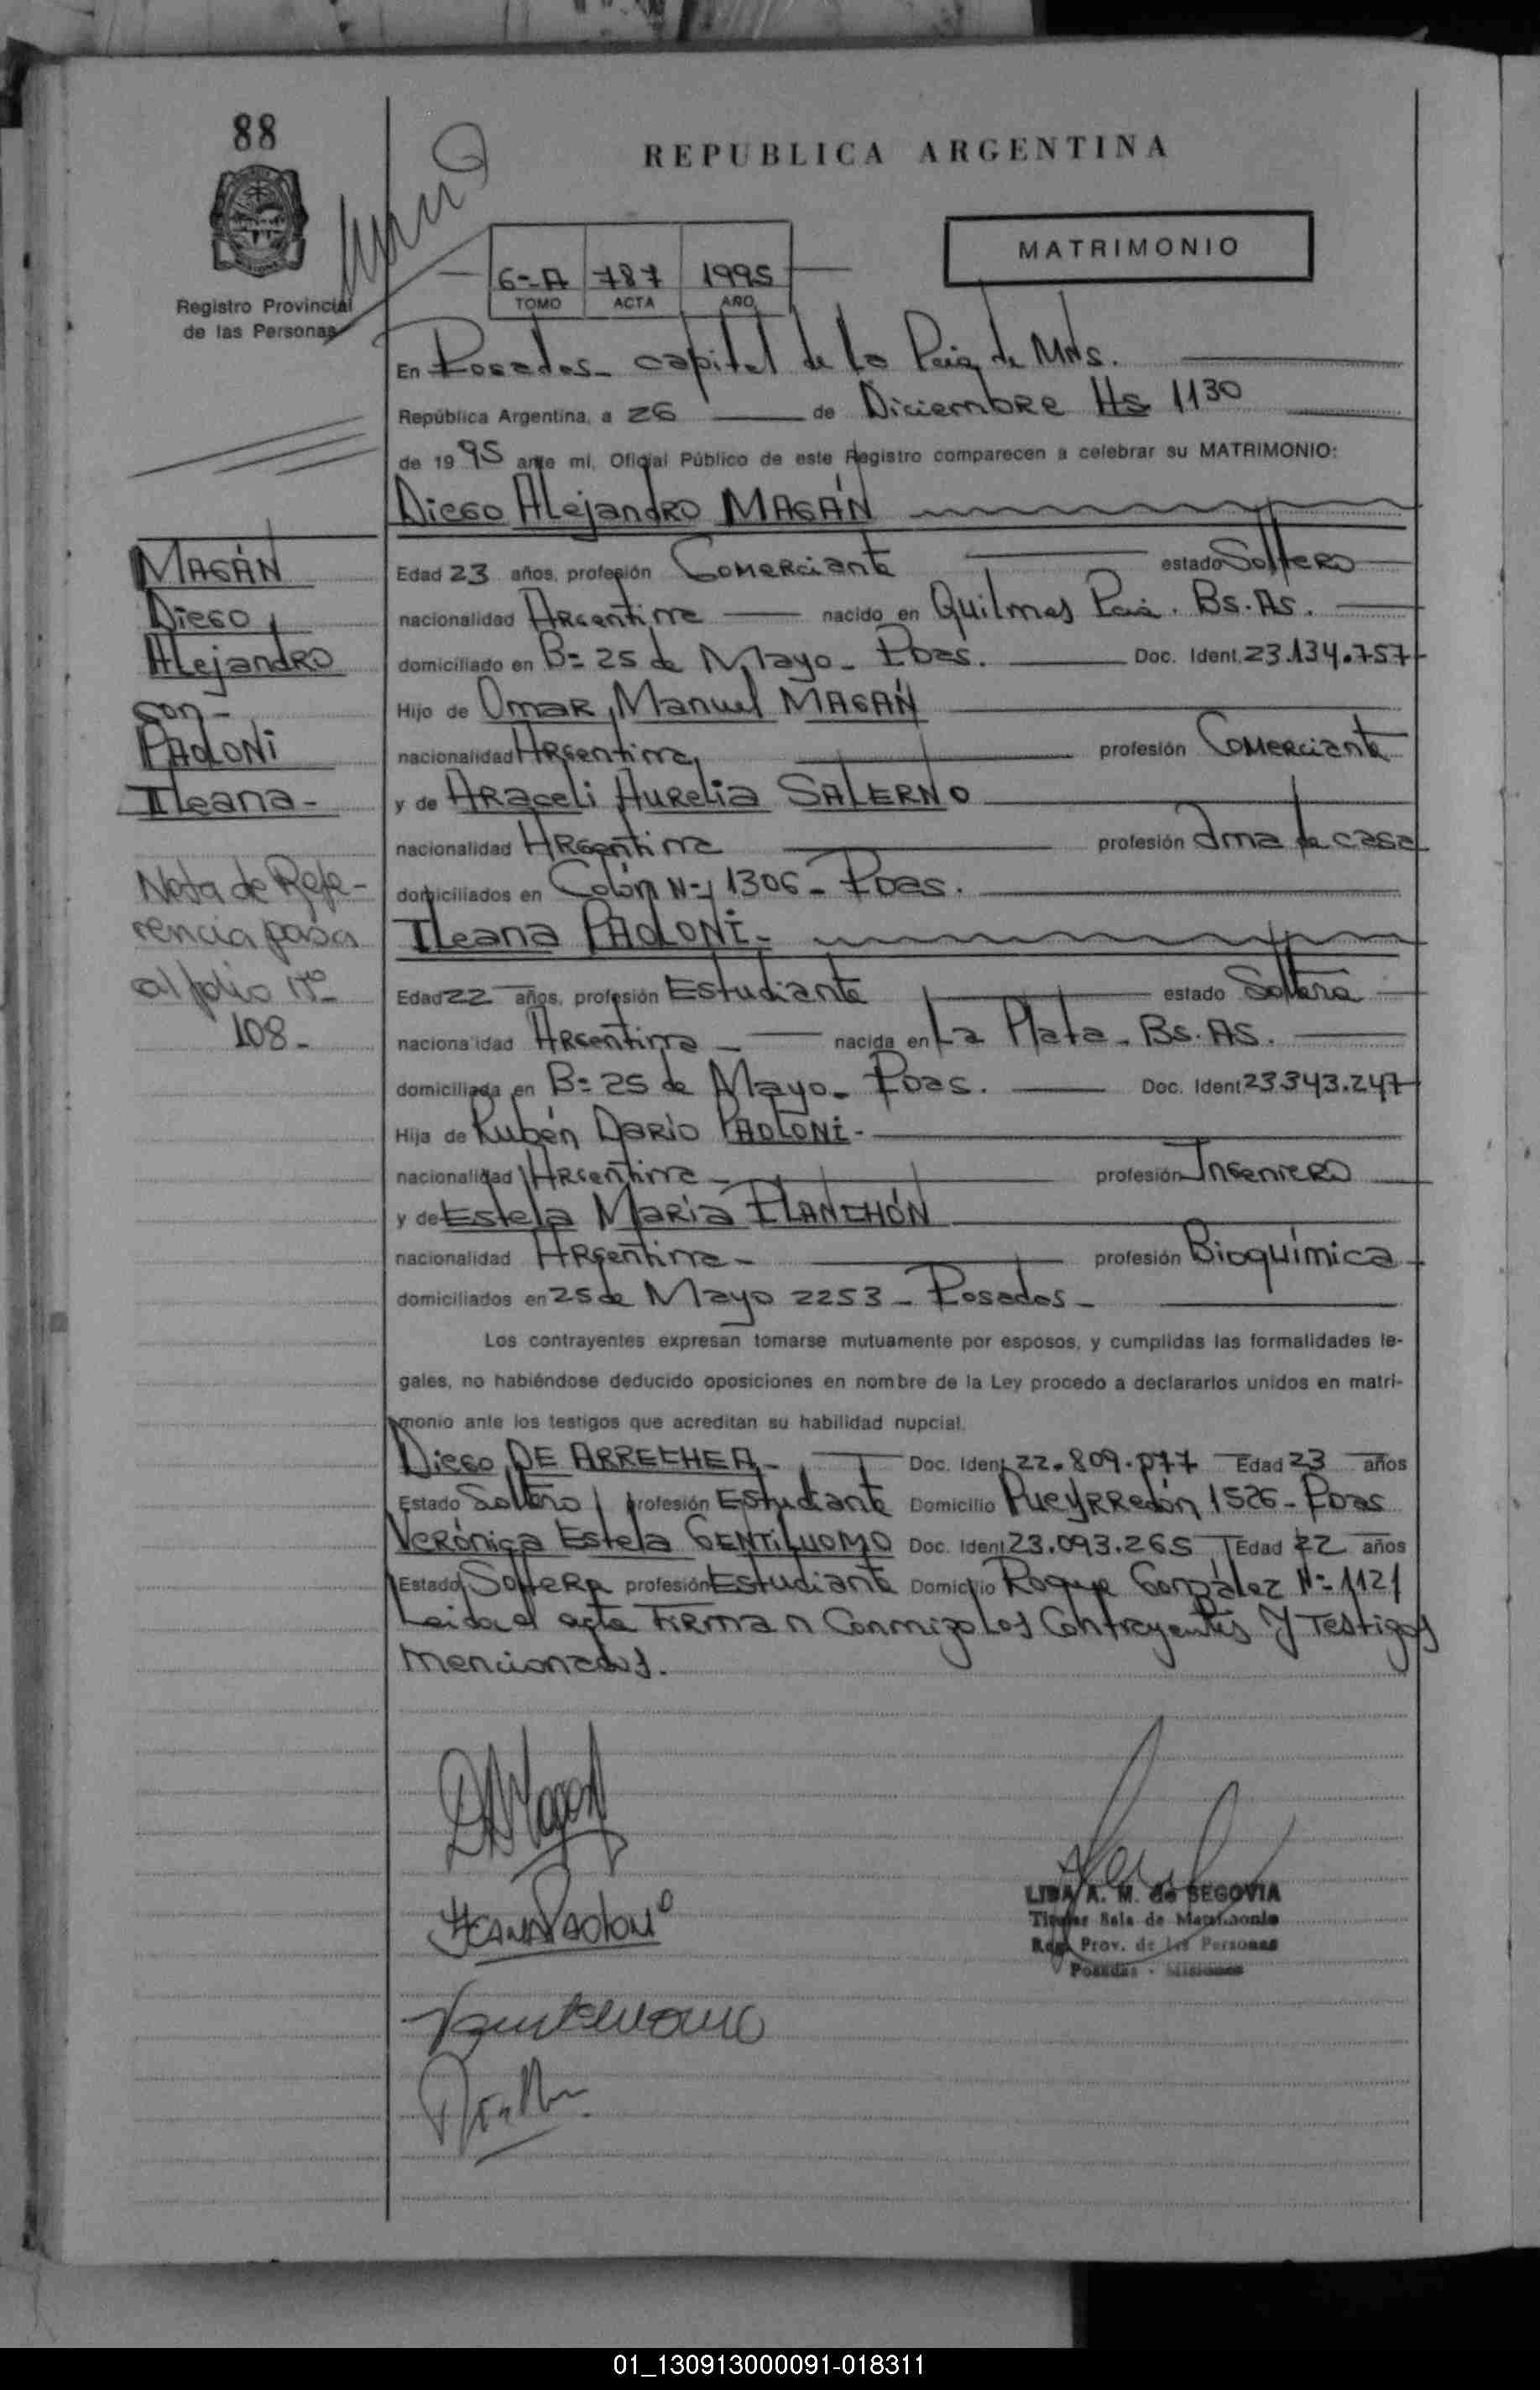 88
REPUBLICA ARGENTINA
MATRIMONIO
6-A 787 1995
TOMO ACTA AÑO
Registro Provincial
de las Personas
En Posadas - capital de la Pcia. de Mns.
República Argentina, a 26 de Diciembre Hs 1130
de 1995 ante mí, Oficial Público de este Registro comparecen a celebrar su MATRIMONIO:
Diego Alejandro MAGÁN
MAGÁN
Diego
Alejandro
con -
PAOLONI
Ileana -
Nota de Refe-
rencia pasa
al folio Nº
108 -
Edad 23 años, profesión Comerciante estado Soltero
nacionalidad Argentina nacido en Quilmes Pcia. Bs. As.
domiciliado en Bº 25 de Mayo - Pdas. Doc. Ident. 23.134.757
Hijo de Omar Manuel MAGÁN
nacionalidad Argentina profesión Comerciante
y de Araceli Aurelia SALERNO
nacionalidad Argentina profesión Ama de casa
domiciliados en Colón Nº 1306 - Pdas.
Ileana PAOLONI -
Edad 22 años, profesión Estudiante estado Soltera
nacionalidad Argentina - nacida en La Plata - Bs. As.
domiciliada en Bº 25 de Mayo - Pdas. Doc. Ident. 23.343.247
Hija de Rubén Darío PAOLONI -
nacionalidad Argentina - profesión Ingeniero
y de Estela María PLANCHÓN
nacionalidad Argentina - profesión Bioquímica
domiciliados en 25 de Mayo 2253 - Posadas -
Los contrayentes expresan tomarse mutuamente por esposos, y cumplidas las formalidades le-
gales, no habiéndose deducido oposiciones en nombre de la Ley procedo a declararlos unidos en matri-
monio ante los testigos que acreditan su habilidad nupcial.
Diego DE ARRECHEA - Doc. Ident. 22.809.077 Edad 23 años
Estado Soltero profesión Estudiante Domicilio Pueyrredón 1526 - Pdas
Verónica Estela GENTILUOMO Doc. Ident. 23.093.265 Edad 22 años
Estado Soltera profesión Estudiante Domicilio Roque González Nº 1121
Leida el acta Firman Conmigo Los Contrayentes Y Testigos
mencionados.
Ileana Paoloni
LIDA A. M. de SEGOVIA
Titular Sala de Matrimonio
Reg. Prov. de las Personas
Posadas - Misiones
01_130913000091-018311